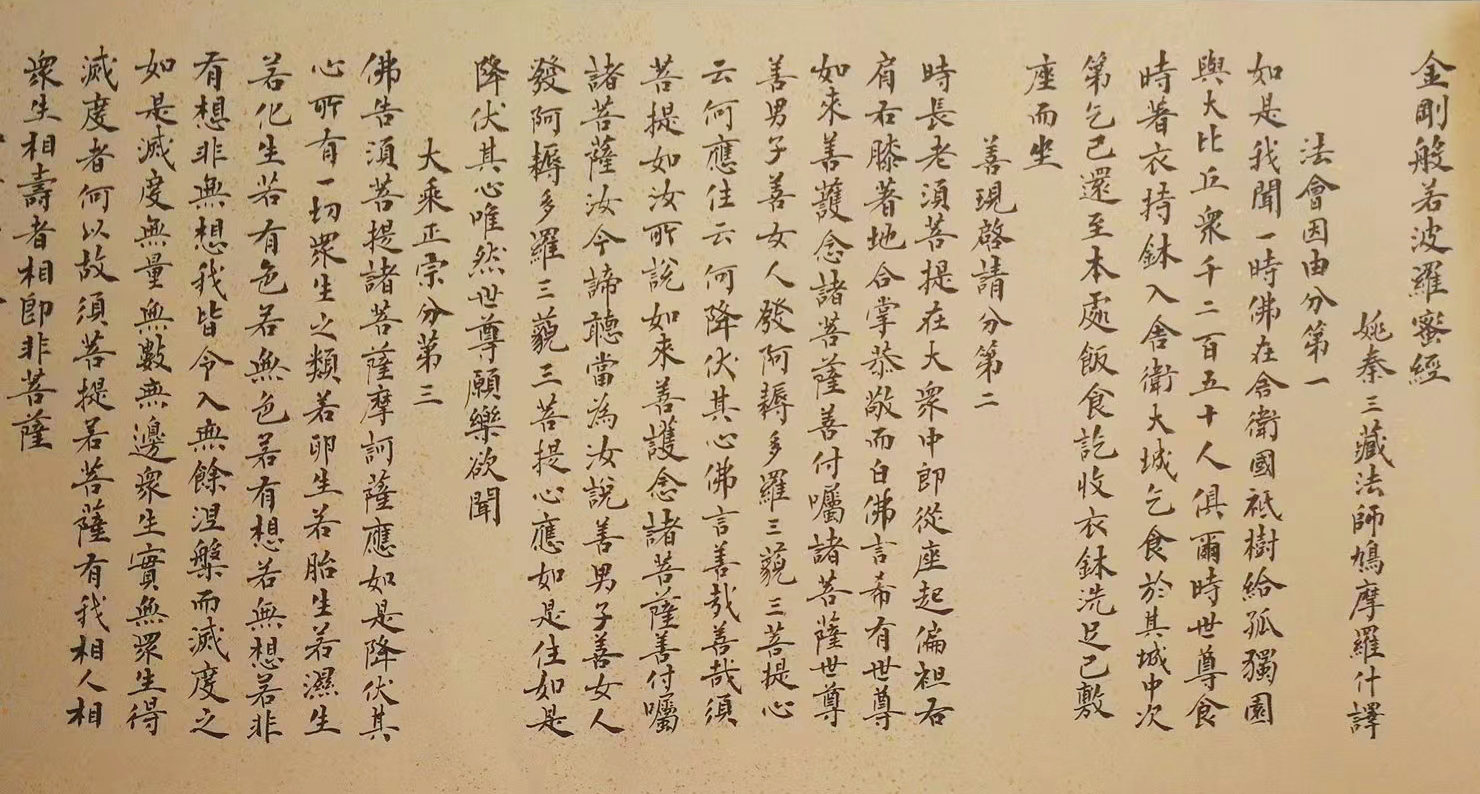 金剛般若波羅蜜經
姚秦三藏法師鳩摩羅什譯
法會因由分第一
如是我聞一時佛在舍衛國祇樹給孤獨園
與大比丘衆千二百五十人俱爾時世尊食
時著衣持鉢入舍衛大城乞食於其城中次
第乞已還至本處飯食訖收衣鉢洗足已敷
座而坐
善現啓請分第二
時長老須菩提在大衆中即從座起偏袒右
肩右膝著地合掌恭敬而白佛言希有世尊
如來善護念諸菩薩善付囑諸菩薩世尊
善男子善女人發阿耨多羅三藐三菩提心
云何應住云何降伏其心佛言善哉善哉須
菩提如汝所說如來善護念諸菩薩善付囑
諸菩薩汝今諦聽當為汝說善男子善女人
發阿耨多羅三藐三菩提心應如是住如是
降伏其心唯然世尊願樂欲聞
大乘正宗分第三
佛告須菩提諸菩薩摩訶薩應如是降伏其
心所有一切衆生之類若卵生若胎生若濕生
若化生若有色若無色若有想若無想若非
有想非無想我皆令入無餘涅槃而滅度之
如是滅度無量無數無邊衆生實無衆生得
滅度者何以故須菩提若菩薩有我相人相
衆生相壽者相即非菩薩